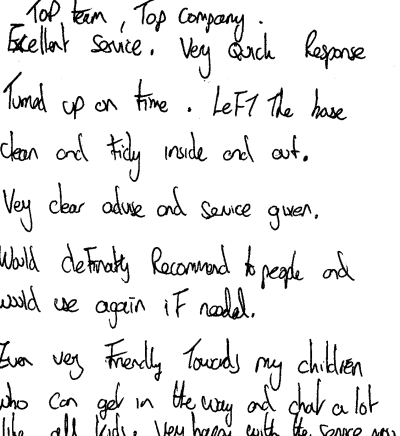 Top team, Top Company.
Excellent Service. Very Quick Response
Turned up on time. Left the house
clean and tidy inside and out.
Very clear advise and service given.
Would definatly Recommend to people and
would use again if needed.
Even very Friendly Towards my children
who can get in the way and chat a lot
like all kids. Very happy with the service